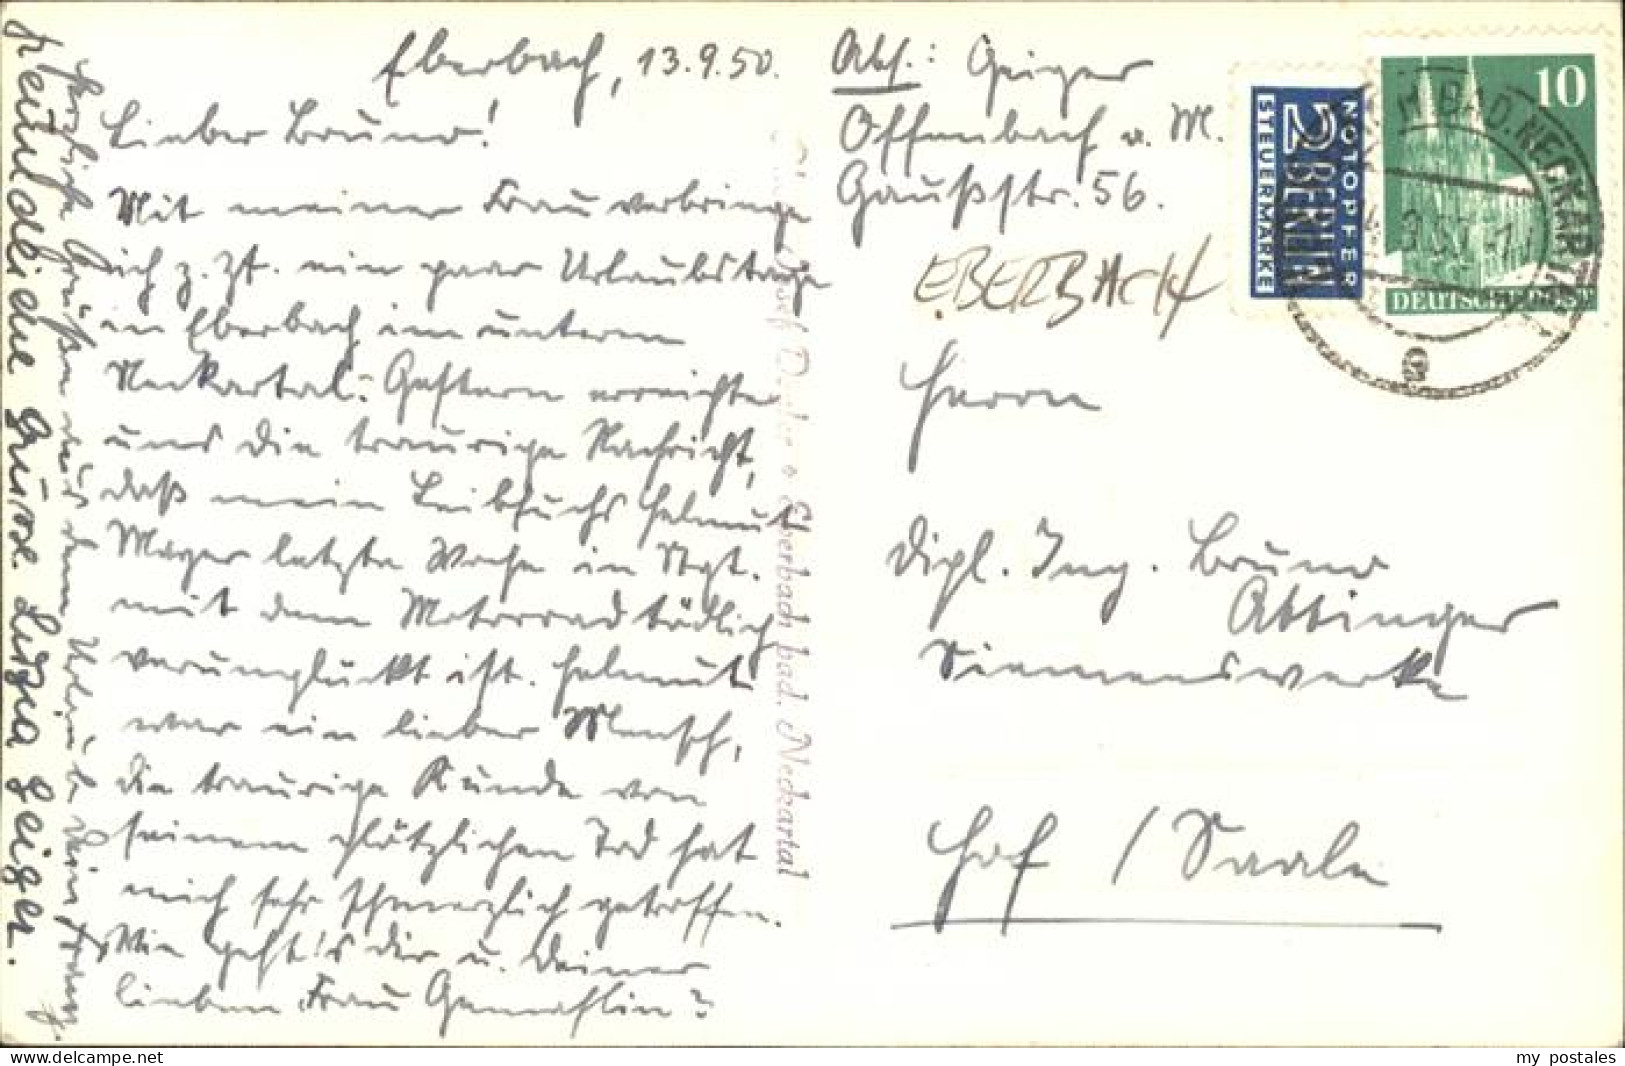 Eberbach, 13.9.50.
Lieber Bruno!
Mit meiner Frau verbringe
ich z. Zt. ein paar Urlaubstage
in Eberbach im unteren
Neckartal. Gestern erreichte
uns die traurige Nachricht,
daß mein Leibfuchs Helmut
Mayer letzte Woche in Stgt.
mit dem Motorrad tödlich
verunglückt ist. Helmut
war ein lieber Mensch,
die traurige Kunde von
seinem plötzlichen Tod hat
mich sehr schmerzlich getroffen.
Wie geht's dir u. Deiner
lieben Frau Gemahlin?
Herzliche Grüße aus dem Urlaub Dein Franz.
Freundliche Grüsse Luzia Geiger.
Abs.: Geiger
Offenbach a. M.
Gaußstr. 56.
EBERBACH
Herrn
Dipl. Ing. Bruno
Attinger
Siemenswerke
Hof / Saale
Eberbach bad. Neckartal
NOTOPFER
2 BERLIN
STEUERMARKE
10
DEUTSCHE POST
BAD. NECKARTAL
my postales
www.delcampe.net